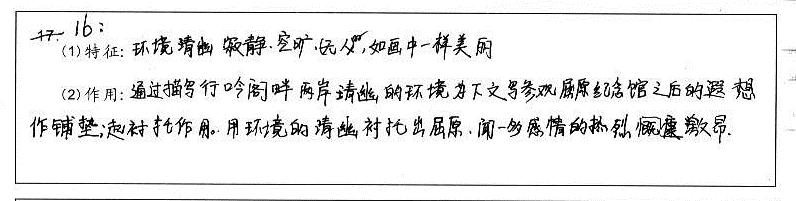 16:
(1)特征: 环境清幽 寂静.空旷.远人,如画中一样美丽
(2)作用: 通过描写行吟阁畔两岸清幽的环境为下文写参观屈原纪念馆之后的遐想
作铺垫;起衬托作用。用环境的清幽衬托出屈原.闻一多感情的热烈激昂.